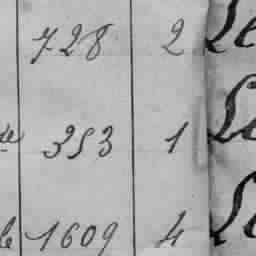 728 2 Le
353 1 Le
1609 4 Le